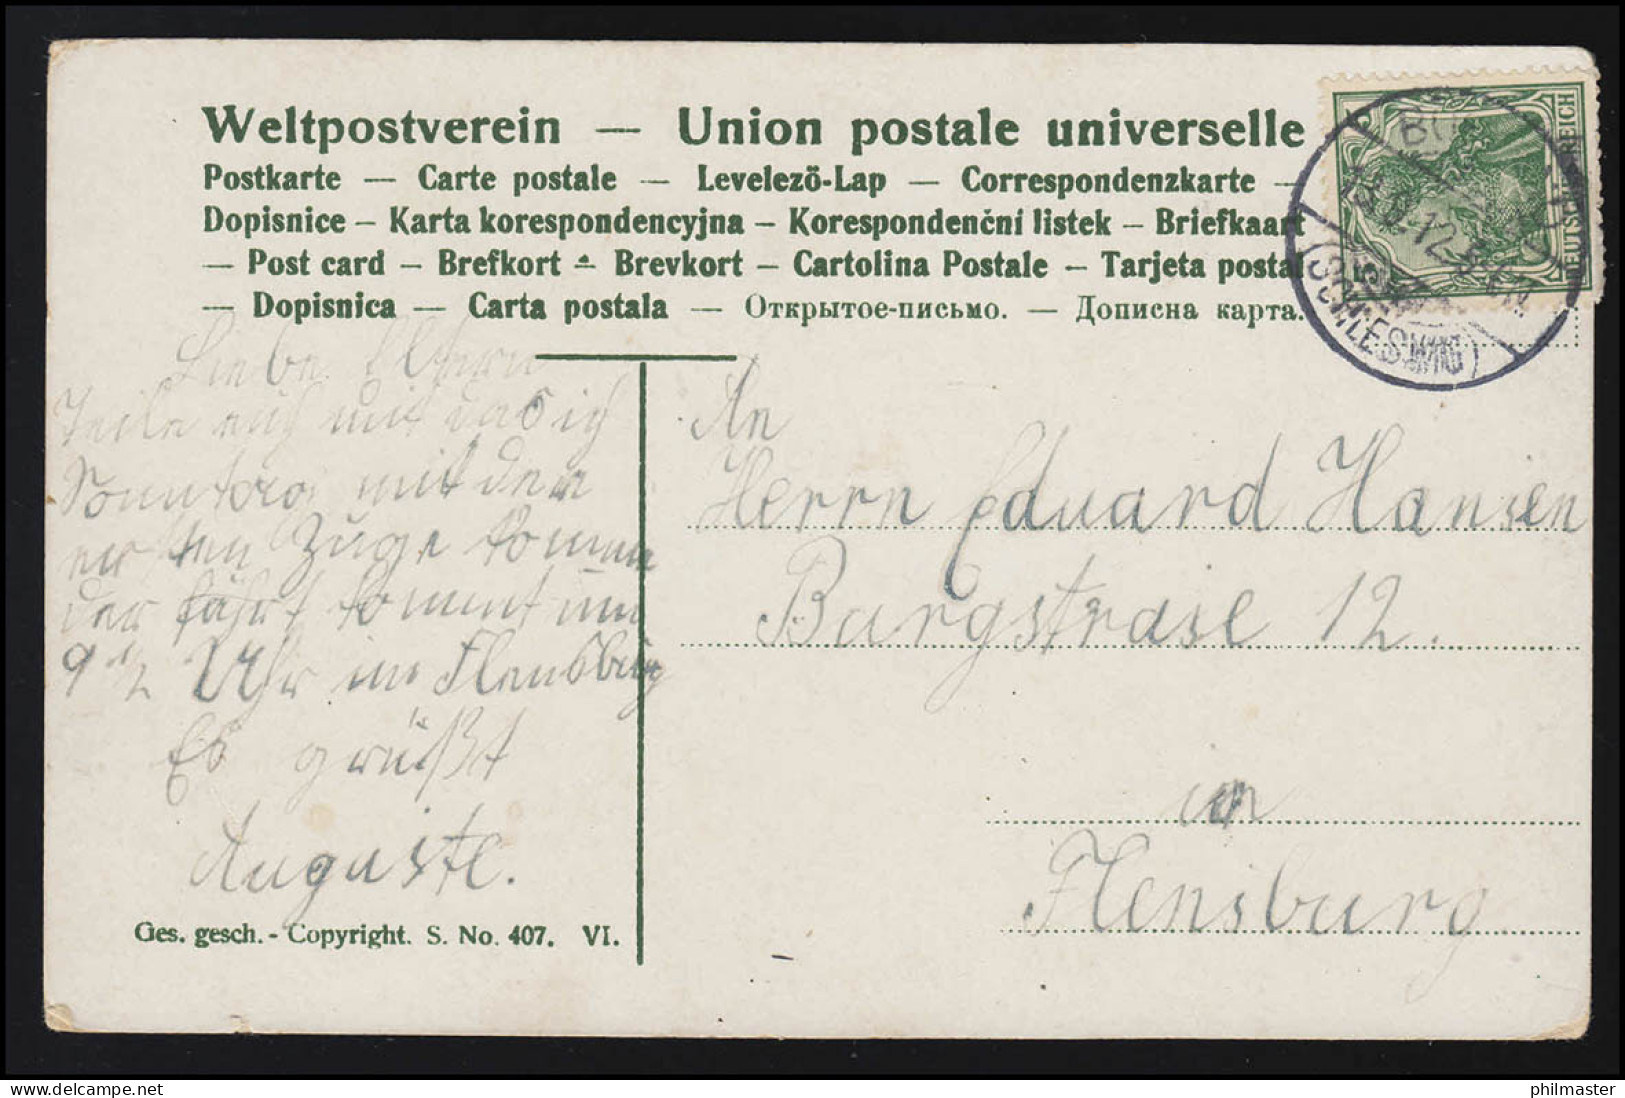 Weltpostverein — Union postale universelle
Postkarte — Carte postale — Levelező-Lap — Correspondenzkarte —
Dopisnice — Karta korespondencyjna — Korespondenční listek — Briefkaart
— Post card — Brefkort — Brevkort — Cartolina Postale — Tarjeta postal
— Dopisnica — Carta postala — Открытое-письмо. — Дописна карта.
DEUTSCHES REICH
(SCHLESWIG)
Liebe Eltern
Teile euch mit das ich
Sonntag mit den
ersten Zuge komme
der fährt kommt um
9 1/2 Uhr in Flensburg
Es grüßt
Auguste.
An
Herrn Eduard Hansen
Burgstrase 12.
in
Flensburg
Ges. gesch. - Copyright. S. No. 407. VI.
delcampe.net
philmaster